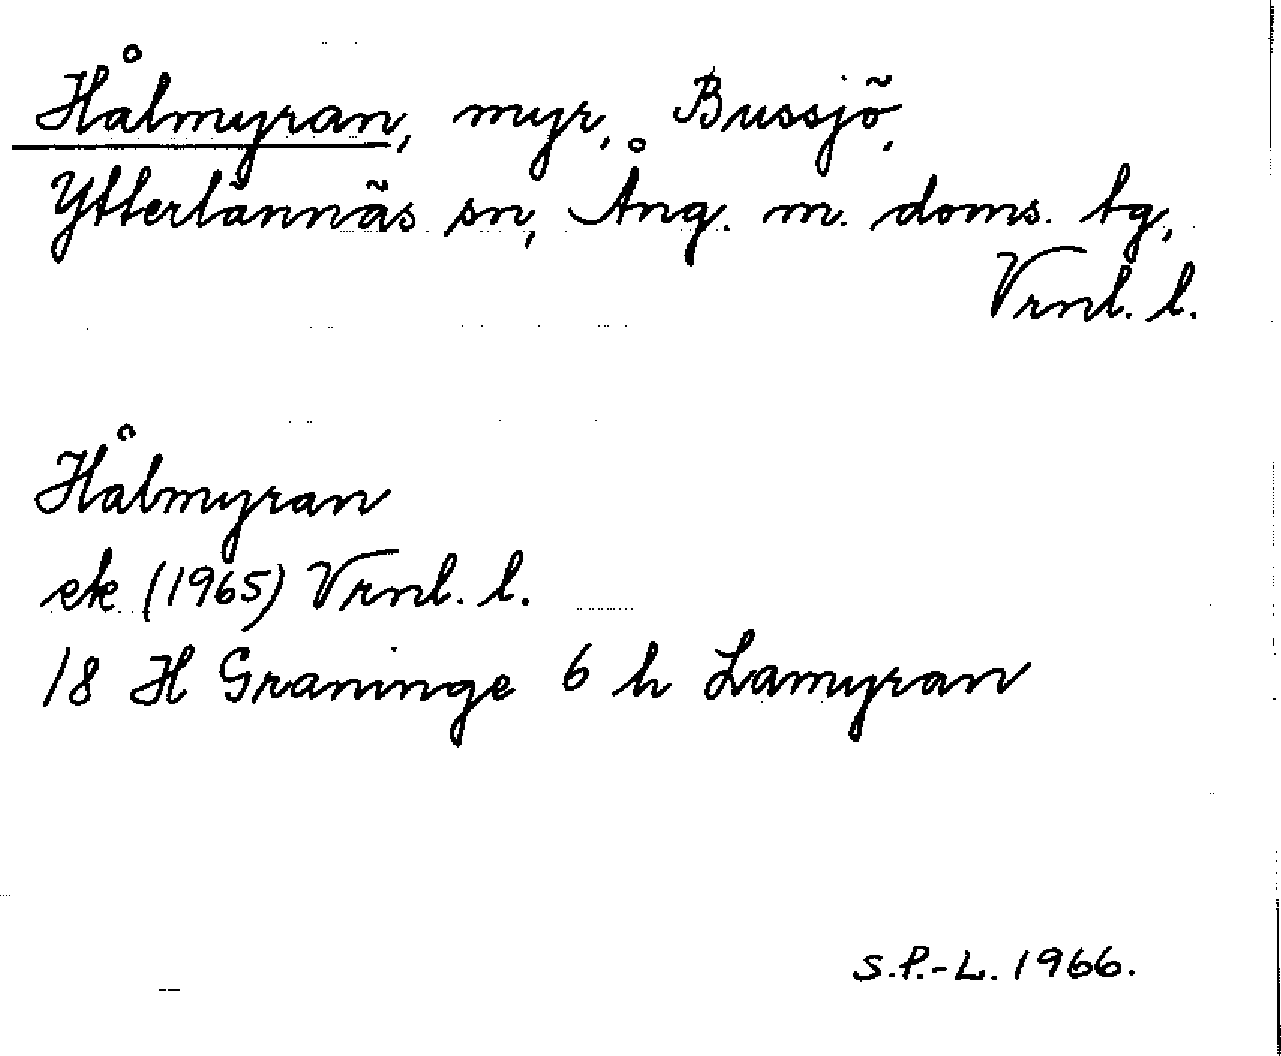 Hålmyran, myr, Bussjö,
Ytterlännäs sn, Ång. m. doms. tg,
Vrnl. l.
Hålmyran
ek (1965) Vrnl. l.
18 H Graninge 6 h Lamyran
S.P.-L. 1966.